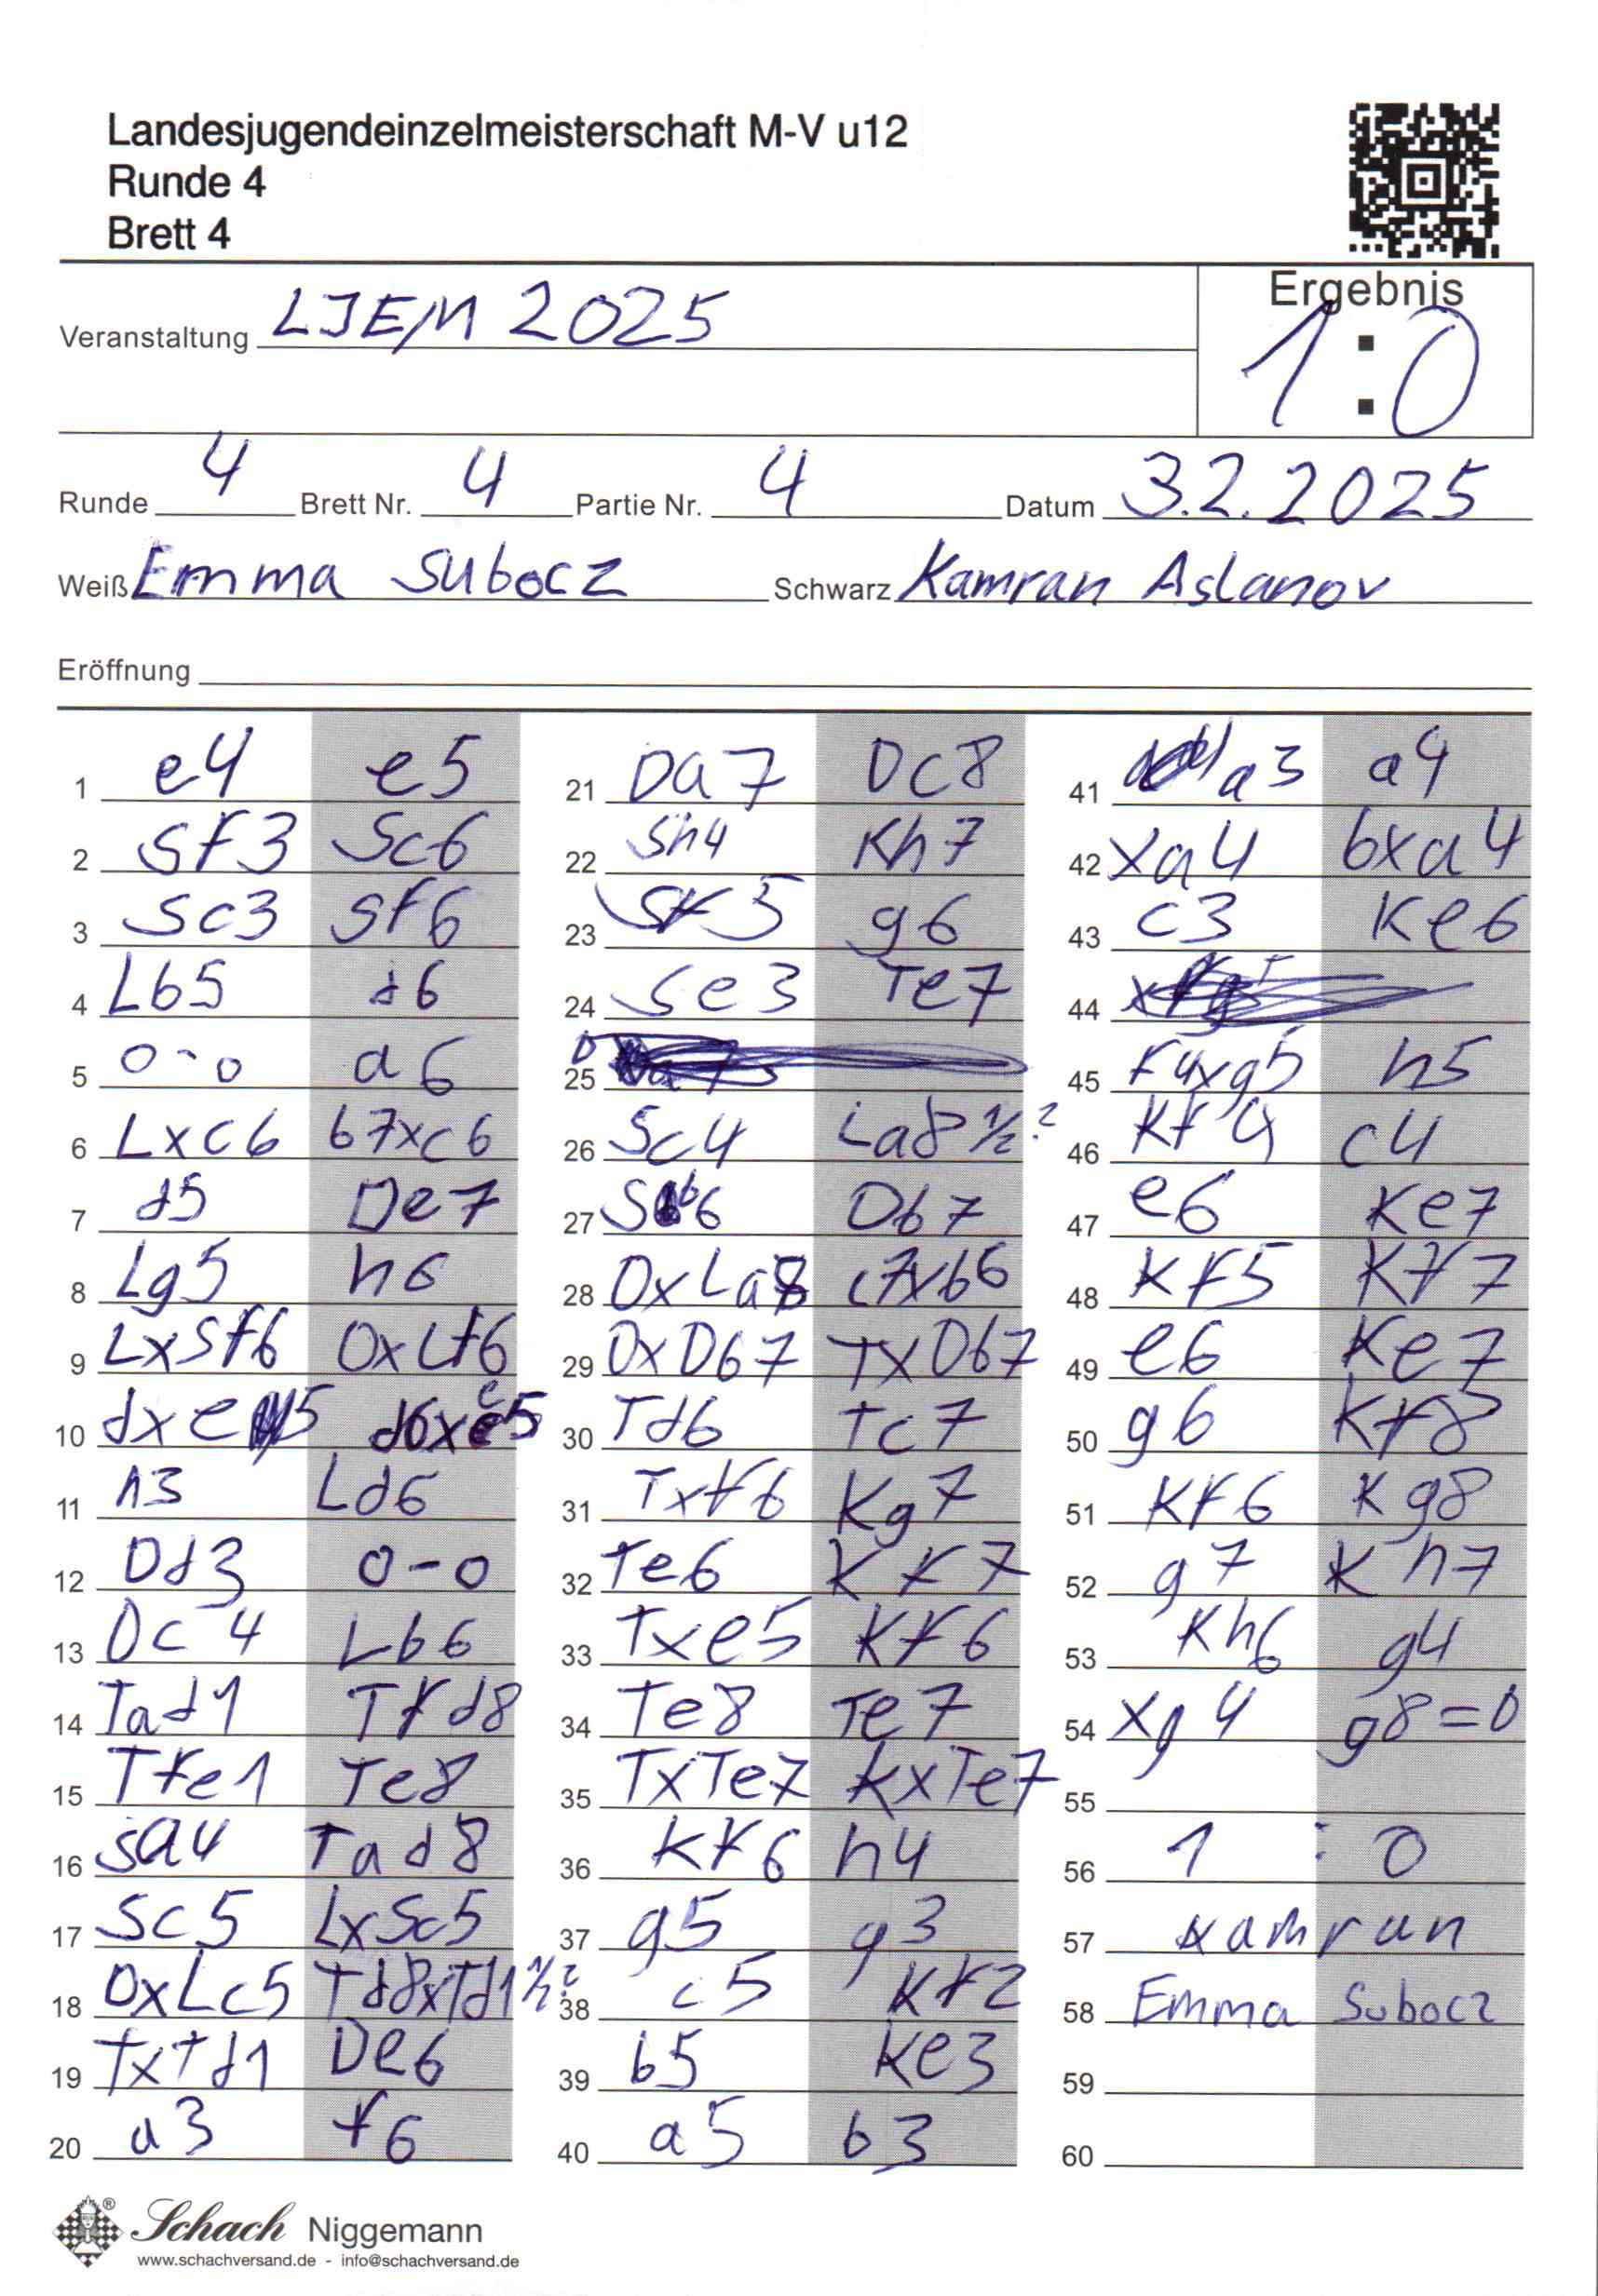 Landesjugendeinzelmeisterschaft M-V u12
Runde 4
Brett 4
Ergebnis
1:0
Veranstaltung LJEM 2025
Runde 4 Brett Nr. 4 Partie Nr. 4 Datum 3.2.2025
Weiß Emma Subocz Schwarz Kamran Aslanov
Eröffnung
1 e4 e5
2 Sf3 Sc6
3 Sc3 Sf6
4 Lb5 d6
5 0-0 a6
6 Lxc6 b7xc6
7 d5 De7
8 Lg5 h6
9 LxSf6 DxLf6
10 dxe5 d6xe5
11 h3 Ld6
12 Dd3 0-0
13 Dc4 Lb6
14 Tad1 Tfd8
15 Tfe1 Te8
16 Sa4 Tad8
17 Sc5 LxSc5
18 DxLc5 Td8xTd1 1/2?
19 TxTd1 De6
20 a3 f6
21 Da7 Dc8
22 Sh4 Kh7
23 Sf5 g6
24 Se3 Te7
25
26 Sc4 La8 1/2?
27 Sb6 Db7
28 DxLa8 c7xb6
29 DxDb7 TxDb7
30 Td6 Tc7
31 Txf6 Kg7
32 Te6 Kf7
33 Txe5 Kf6
34 Te8 Te7
35 TxTe7 KxTe7
36 Kf6 h4
37 g5 g3
38 c5 Kf2
39 b5 Ke3
40 a5 b3
41 a3 a4
42 xa4 bxa4
43 c3 Ke6
44
45 F4xg5 h5
46 Kf4 c4
47 e6 Ke7
48 Kf5 Kf7
49 e6 Ke7
50 g6 Kf8
51 Kf6 Kg8
52 g7 Kh7
53 Kh6 g4
54 xg4 g8=D
55
56 1 : 0
57 Kamran
58 Emma Subocz
59
60
Schach Niggemann
www.schachversand.de - info@schachversand.de